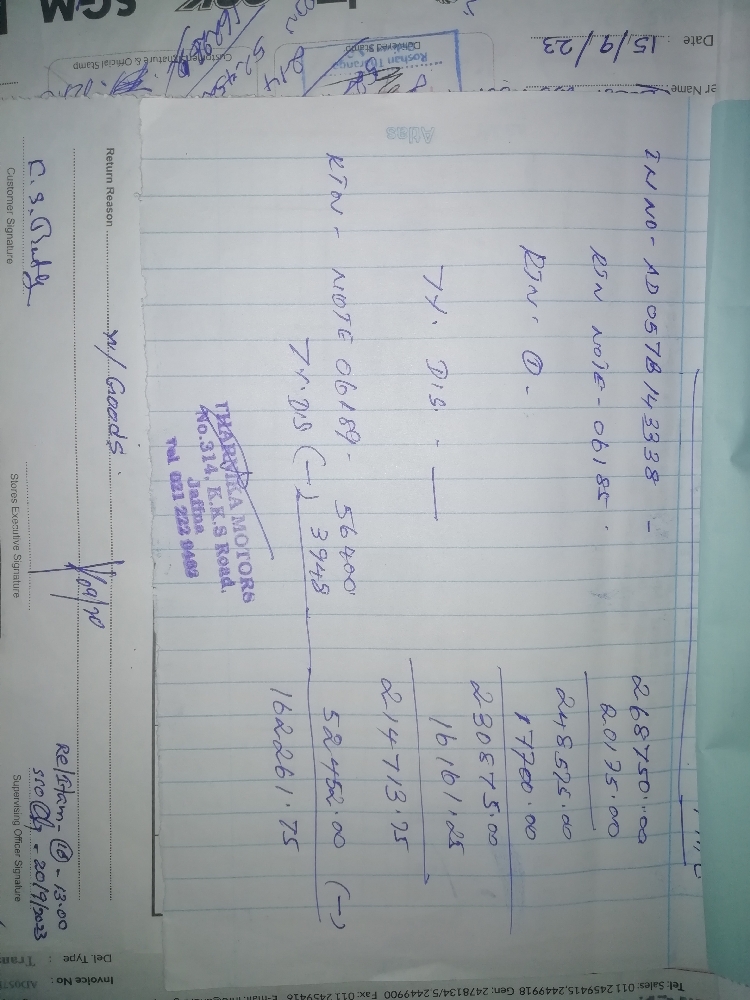 Date : 15/9/23
Customer Signature & Official Stamp
Roshan Tharanga
Atlas
IN NO - AD057B143338 - 268750.00
RTN NOTE - 06185. 20175.00
248575.00
RTN. ① - 17700.00
230875.00
7%. DIS. - 16161.25
214713.75
RTN - NOTE 06189 - 56400
7%. DIS (-) 3948 52452.00 (-)
162261.75
THARVIKA MOTORS
No.314, K.K.S Road,
Jaffna
Tel 021 222 9462
Return Reason
n/ Goods.
Customer Signature
Stores Executive Signature
Supervising Officer Signature
13.00
20/9/2023
Del. Type :
Invoice No :
Tel: Sales: 011 2459415, 2449918 Gen: 2478134/5, 2449900 Fax: 011 2459416